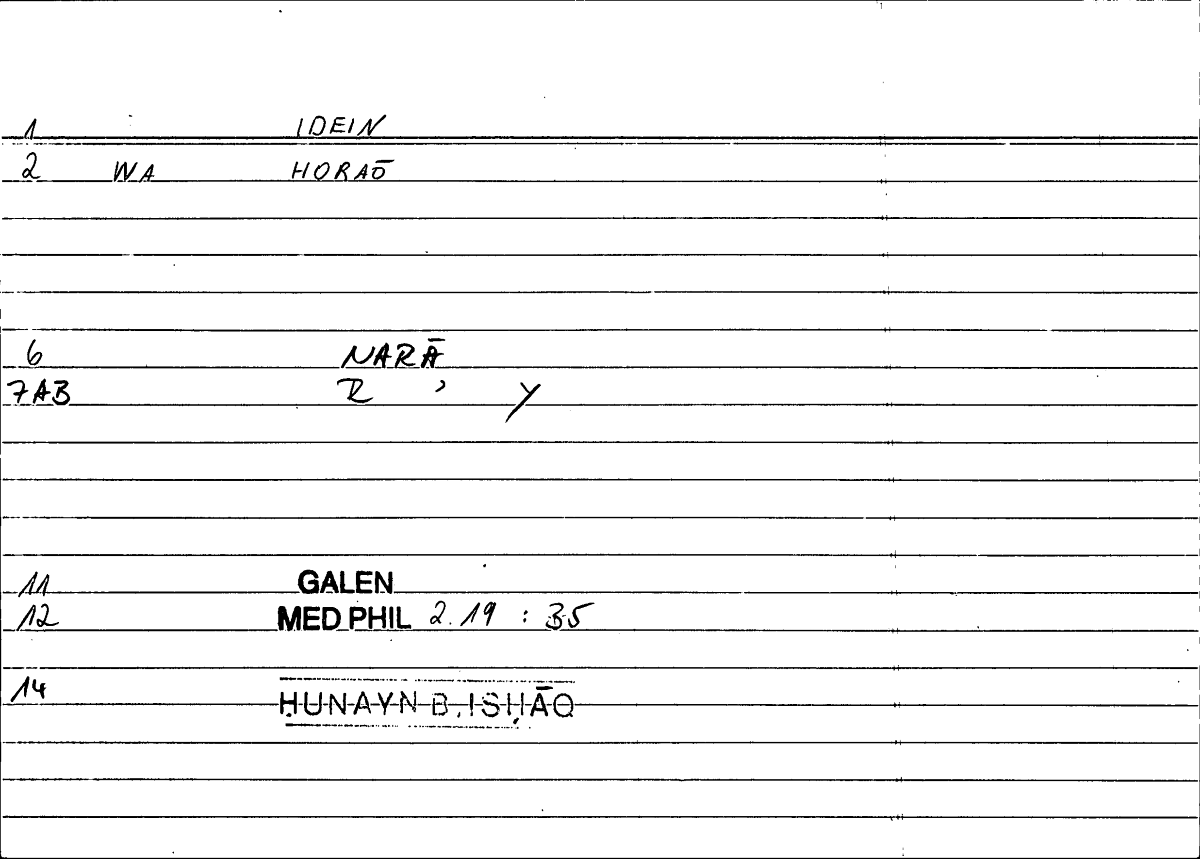 1 IDEIN
2 WA HORAŌ
6 NARĀ
7AB R ʾ Y
11 GALEN
12 MED PHIL 2.19 : 35
14 ḤUNAYN B. ISḤĀQ